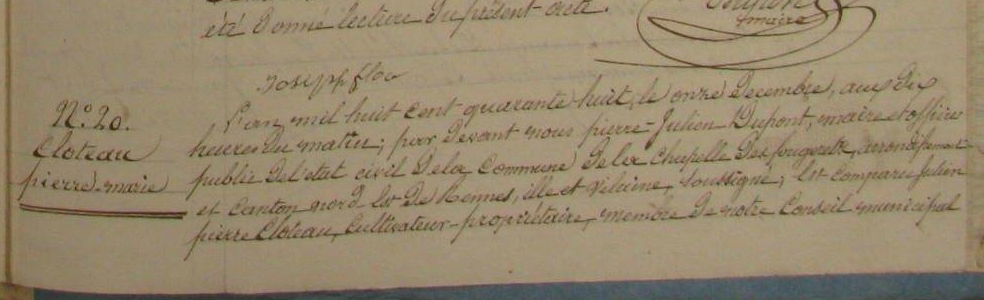 été donné lecture du présent acte.
Dupont
maire
Joseph flou
N.° 20.
Cloteau
pierre-marie
L'an mil huit cent quarante huit, le onze Decembre, aux dix
heures du matin; par devant nous pierre-Julien Dupont, maire et officier
public de l'état civil de la Commune de la Chapelle des fougeretz, arrondissement
et Canton nord Est de Rennes, ille et Vilaine, soussigné; Est comparu Julien
pierre Cloteau, Cultivateur-propriétaire, membre de notre Conseil municipal